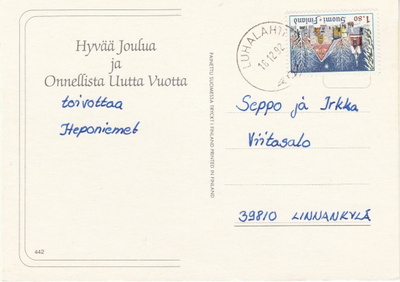 Hyvää Joulua
ja
Onnellista Uutta Vuotta
toivottaa
Heponiemet
442
PAINETTU SUOMESSA TRYCKT I FINLAND PRINTED IN FINLAND
LUHALAHTI
16.12.92
1.80
Suomi Finland
Seppo ja Irkka
Viitasalo
39810 LINNANKYLÄ